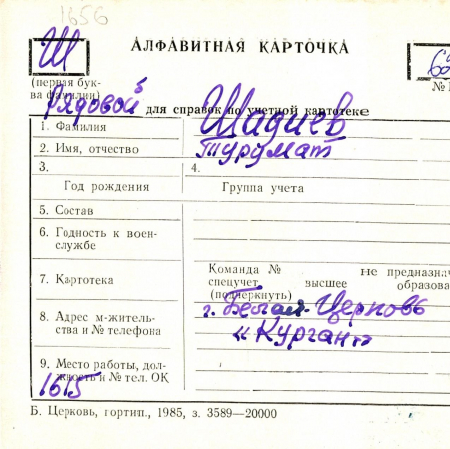 1656
Ш
АЛФАВИТНАЯ КАРТОЧКА
(первая бук-
ва фамилии)
№
Рядовой
для справок по учетной картотеке
1. Фамилия Шадиев
2. Имя, отчество Турумат
3. 4.
Год рождения Группа учета
5. Состав
6. Годность к воен-
службе
7. Картотека
Команда № не предназнач
спецучет высшее образова
(подчеркнуть)
8. Адрес м-житель-
ства и № телефона
г. Белая-Церковь
«Курган»
9. Место работы, дол-
жность и № тел. ОК
1615
Б. Церковь, гортип., 1985, з. 3589—20000